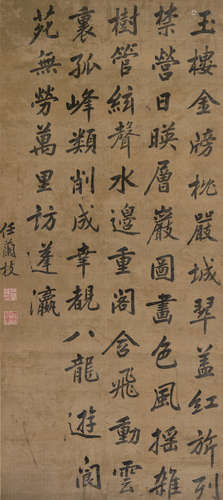 玉樓金牓枕嚴城翠蓋紅旂列
禁營日暎層巖圖畫色風搖雜
樹管絃聲水邊重閣含飛動雲
裏孤峰類削成幸覩八龍遊閬
苑無勞萬里訪蓬瀛
任蘭枝